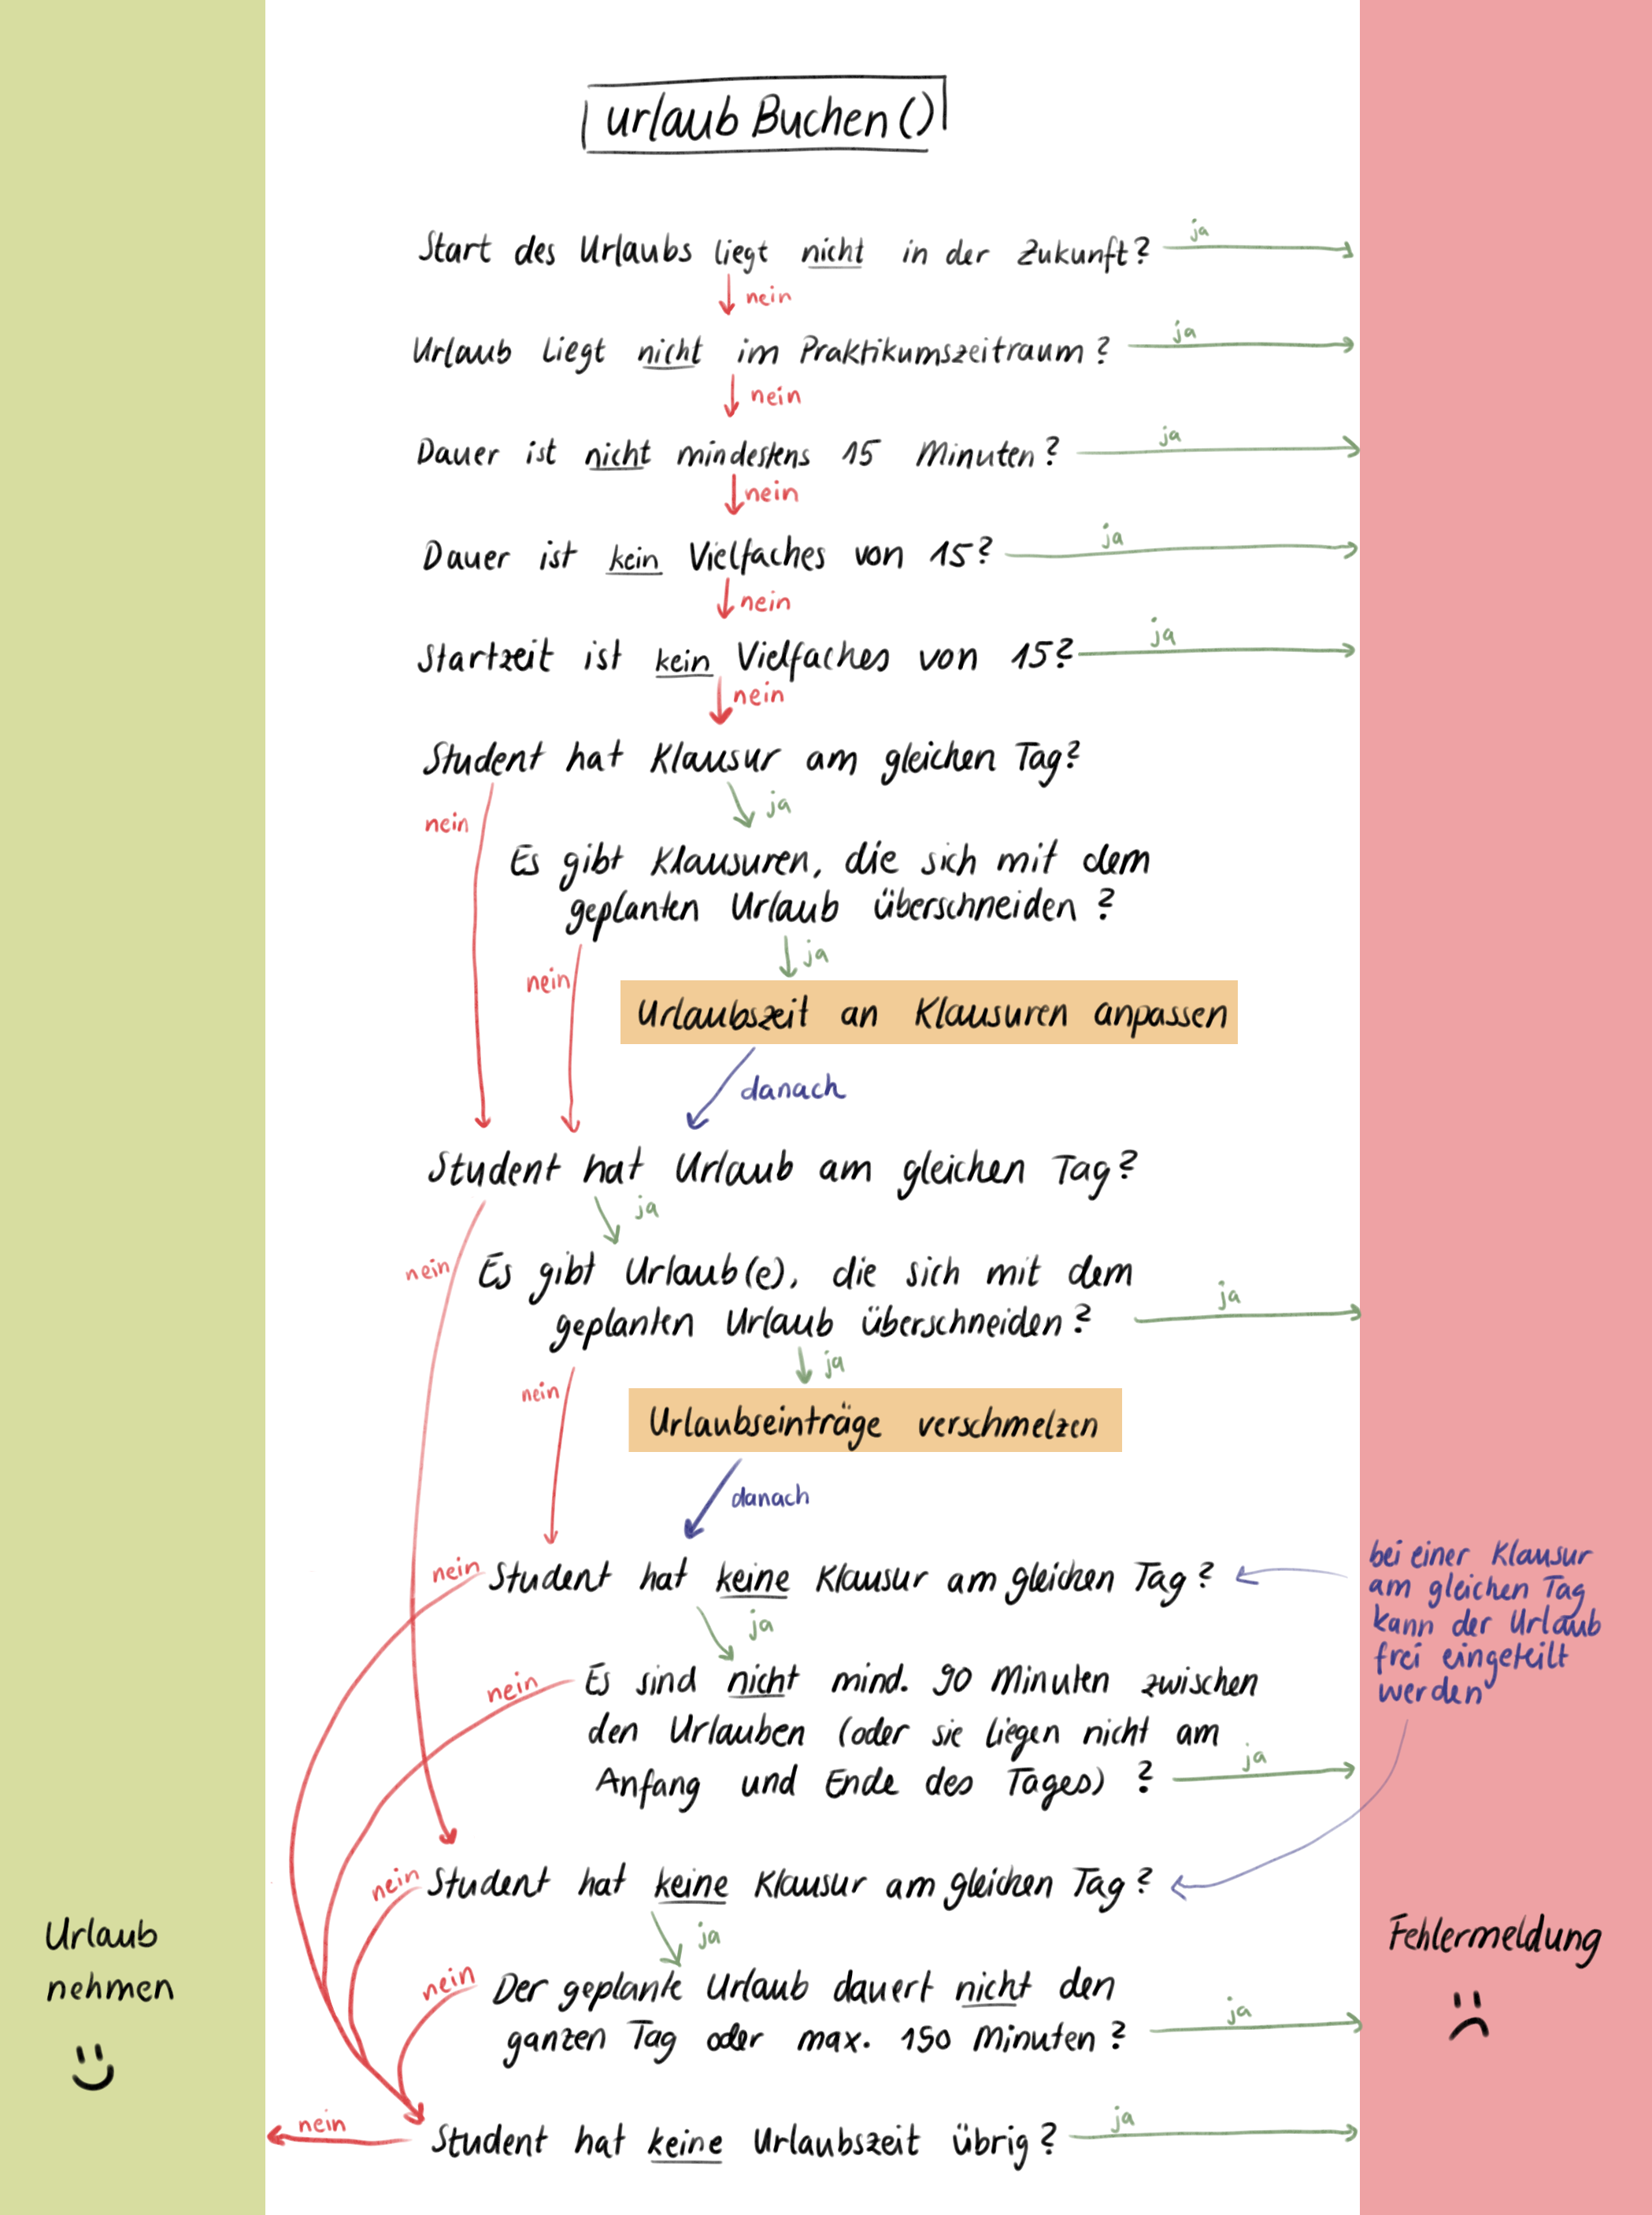 urlaub Buchen()
Start des Urlaubs liegt nicht in der Zukunft?
ja
nein
Urlaub liegt nicht im Praktikumszeitraum?
ja
nein
Dauer ist nicht mindestens 15 Minuten?
ja
nein
Dauer ist kein Vielfaches von 15?
ja
nein
Startzeit ist kein Vielfaches von 15?
ja
nein
Student hat Klausur am gleichen Tag?
nein
ja
Es gibt Klausuren, die sich mit dem
geplanten Urlaub überschneiden?
nein
ja
Urlaubszeit an Klausuren anpassen
danach
Student hat Urlaub am gleichen Tag?
ja
nein
Es gibt Urlaub(e), die sich mit dem
geplanten Urlaub überschneiden?
ja
nein
ja
Urlaubseinträge verschmelzen
danach
nein
Student hat keine Klausur am gleichen Tag?
bei einer Klausur
am gleichen Tag
kann der Urlaub
frei eingeteilt
werden
ja
nein
Es sind nicht mind. 90 Minuten zwischen
den Urlauben (oder sie liegen nicht am
Anfang und Ende des Tages)?
ja
nein
Student hat keine Klausur am gleichen Tag?
ja
nein
Der geplante Urlaub dauert nicht den
ganzen Tag oder max. 150 Minuten?
ja
nein
Student hat keine Urlaubszeit übrig?
ja
Urlaub
nehmen
Fehlermeldung